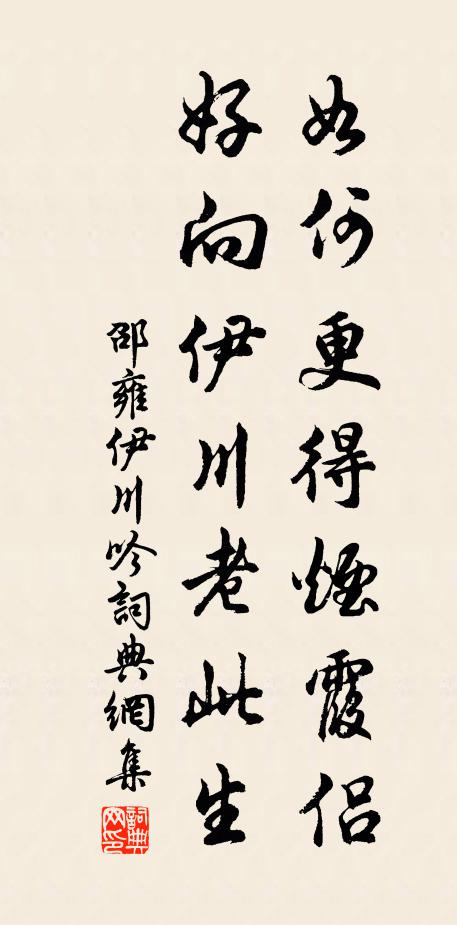 如何更得煙霞侶
好向伊川老此生
邵雍伊川吟詞典網集
詞典網印